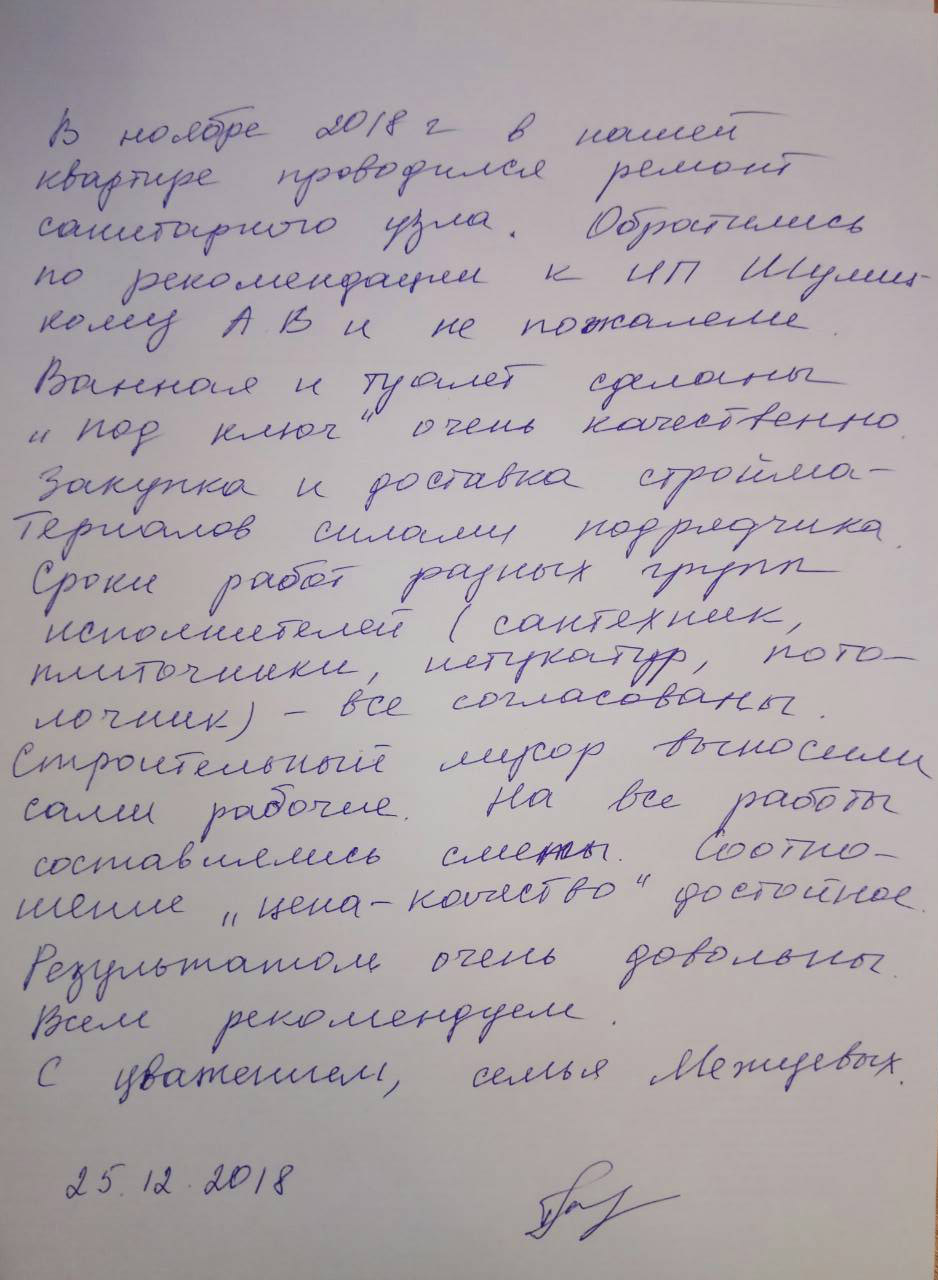 В ноябре 2018 г в нашей
квартире проводился ремонт
санитарного узла. Обратились
по рекомендации к ИП Шулиц-
кому А В и не пожалели.
Ванная и туалет сделаны
„под ключ“ очень качественно.
Закупка и доставка стройма-
териалов силами подрядчика.
Сроки работ разных групп
исполнителей (сантехник,
плиточники, штукатур, пото-
лочник) – все согласованы.
Строительный мусор выносили
сами рабочие. На все работы
составлялись сметы. Соотно-
шение „цена-качество“ достойное.
Результатом очень довольны.
Всем рекомендуем.
С уважением, семья
25.12.2018